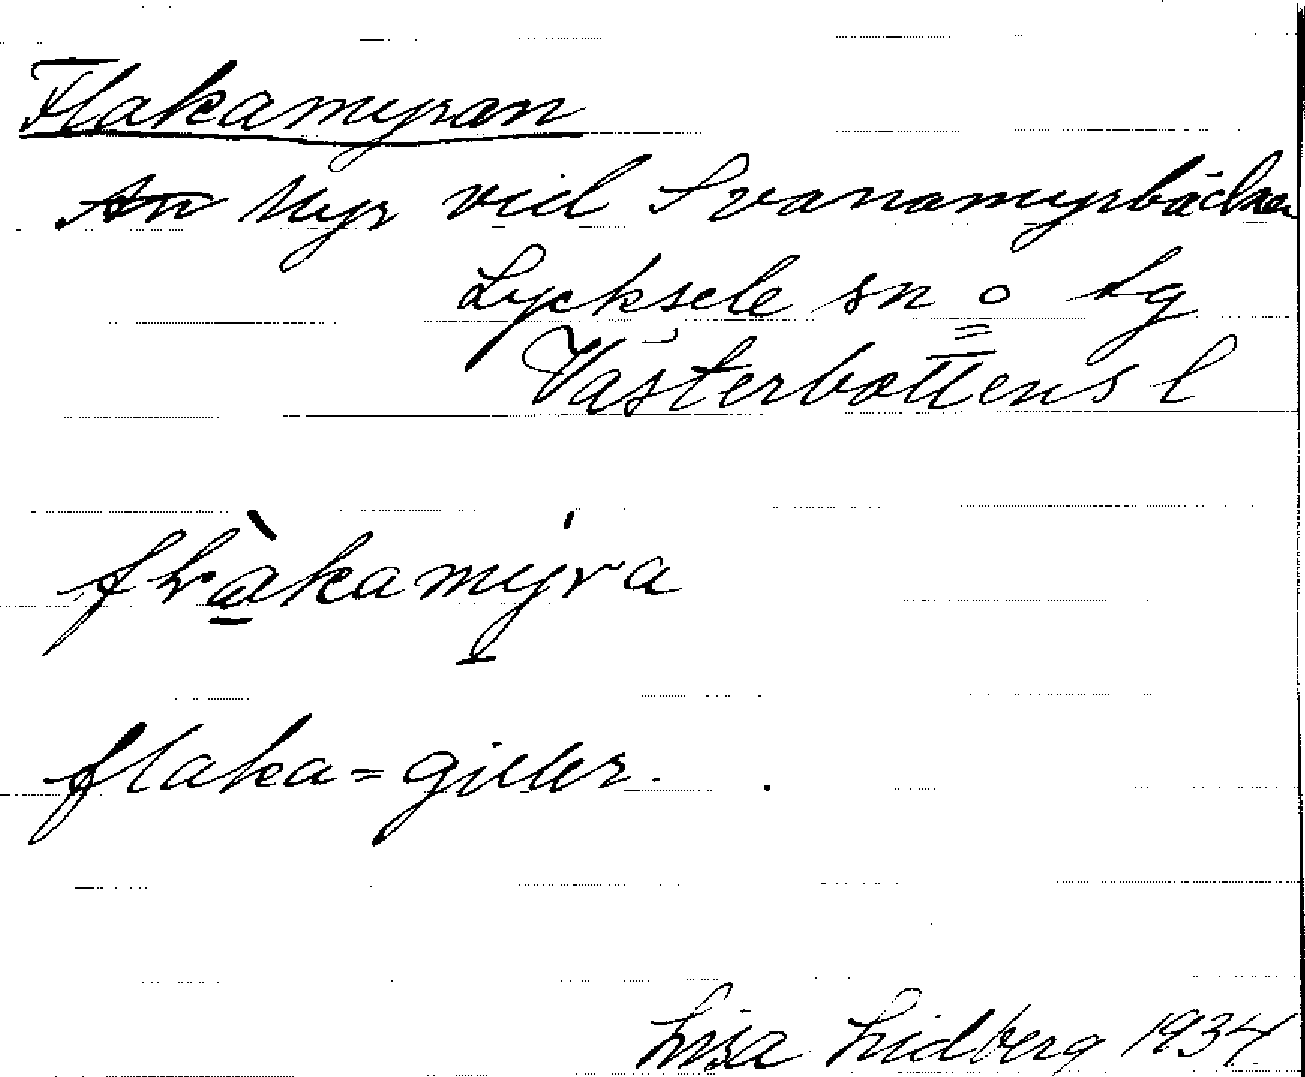 Flakamyran
Myr vid Svanamyrbäcken
Lycksele sn o Lg
Västerbottens l
flakamýra
flaka = giller.
Lisa Lidberg 1934